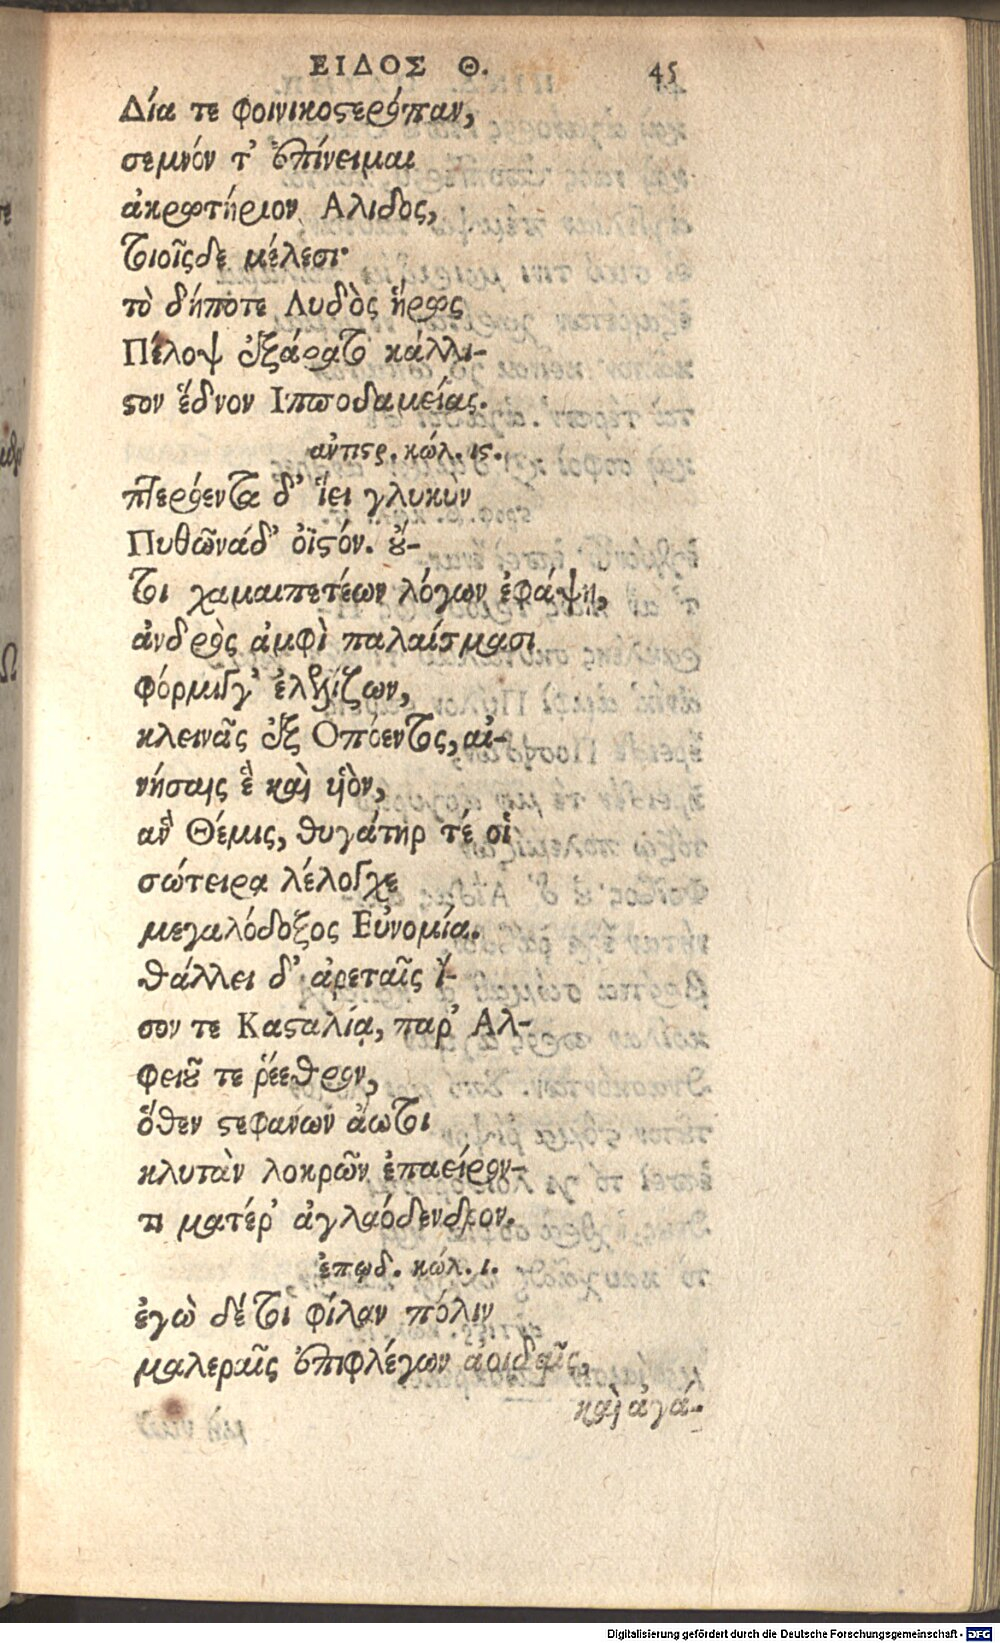 ΕΙΔΟΣ Θ. 45
Δία τε φοινικοϛερόπαν,
σεμνόν τ' ἐπίνειμαι
ἀκρωτήριον Αλιδος,
τοιοῖσδε μέλεσι·
τὸ δήποτε Λυδὸς ἥρως
Πέλοψ ἐξάρατο κάλλι-
ϛον ἕδνον Ιπποδαμείας.
ἀντιϛρ. κώλ. ιϛ.
πτερόεντα δ' ἵει γλυκὺν
Πυθῶνάδ' ὀϊϛόν. οὔ-
τοι χαμαιπετέων λόγων ἐφάψῃ,
ἀνδρὸς ἀμφὶ παλαίσμασι
φόρμιγγ' ἐλελίζων,
κλεινᾶς ἐξ Οπόεντος, αἰ-
νήσαις ἓ καὶ υἱὸν,
ἃν Θέμις, θυγάτηρ τέ οἱ
σώτειρα λέλογχε
μεγαλόδοξος Εὐνομία.
θάλλει δ' ἀρεταῖς ἴ-
σον τε Καϛαλίᾳ, παρ' Αλ-
φειοῦ τε ῥέεθρον,
ὅθεν ϛεφανων ἄωτοι
κλυτὰν λοκρῶν ἐπαείρον-
τι ματέρ' ἀγλαόδενδρον.
ἐπῳδ. κώλ. ι.
ἐγὼ δέ τοι φίλαν πόλιν
μαλεραῖς ἐπιφλέγων ἀοιδαῖς,
καὶ ἀγά-
Digitalisierung gefördert durch die Deutsche Forschungsgemeinschaft - DFG